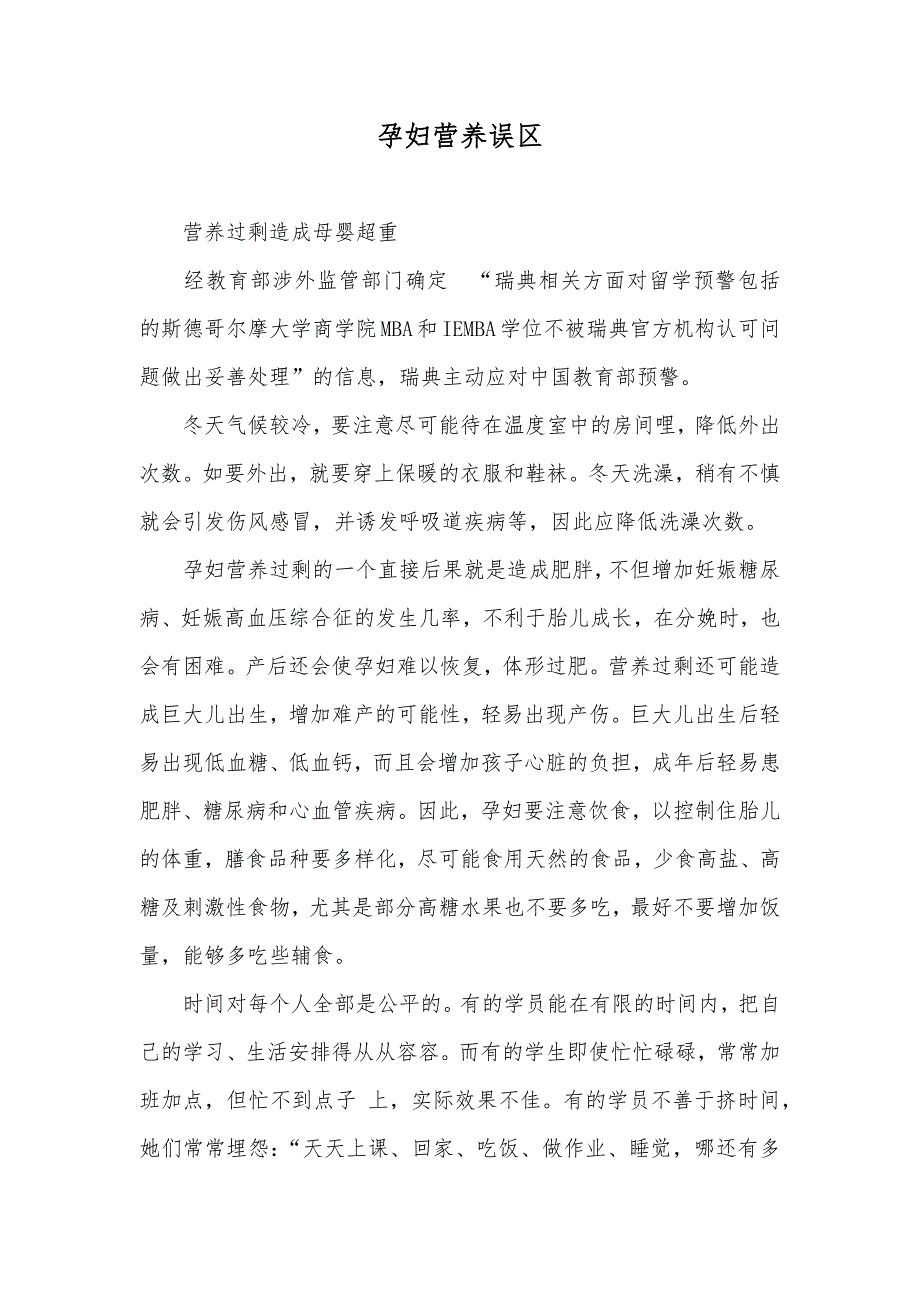 孕妇营养误区
营养过剩造成母婴超重
经教育部涉外监管部门确定 “瑞典相关方面对留学预警包括
的斯德哥尔摩大学商学院MBA和IEMBA学位不被瑞典官方机构认可问
题做出妥善处理”的信息，瑞典主动应对中国教育部预警。
冬天气候较冷，要注意尽可能待在温度室中的房间哩，降低外出
次数。如要外出，就要穿上保暖的衣服和鞋袜。冬天洗澡，稍有不慎
就会引发伤风感冒，并诱发呼吸道疾病等，因此应降低洗澡次数。
孕妇营养过剩的一个直接后果就是造成肥胖，不但增加妊娠糖尿
病、妊娠高血压综合征的发生几率，不利于胎儿成长，在分娩时，也
会有困难。产后还会使孕妇难以恢复，体形过肥。营养过剩还可能造
成巨大儿出生，增加难产的可能性，轻易出现产伤。巨大儿出生后轻
易出现低血糖、低血钙，而且会增加孩子心脏的负担，成年后轻易患
肥胖、糖尿病和心血管疾病。因此，孕妇要注意饮食，以控制住胎儿
的体重，膳食品种要多样化，尽可能食用天然的食品，少食高盐、高
糖及刺激性食物，尤其是部分高糖水果也不要多吃，最好不要增加饭
量，能够多吃些辅食。
时间对每个人全部是公平的。有的学员能在有限的时间内，把自
己的学习、生活安排得从从容容。而有的学生即使忙忙碌碌，常常加
班加点，但忙不到点子 上，实际效果不佳。有的学员不善于挤时间，
她们常常埋怨：“天天上课、回家、吃饭、做作业、睡觉，哪还有多